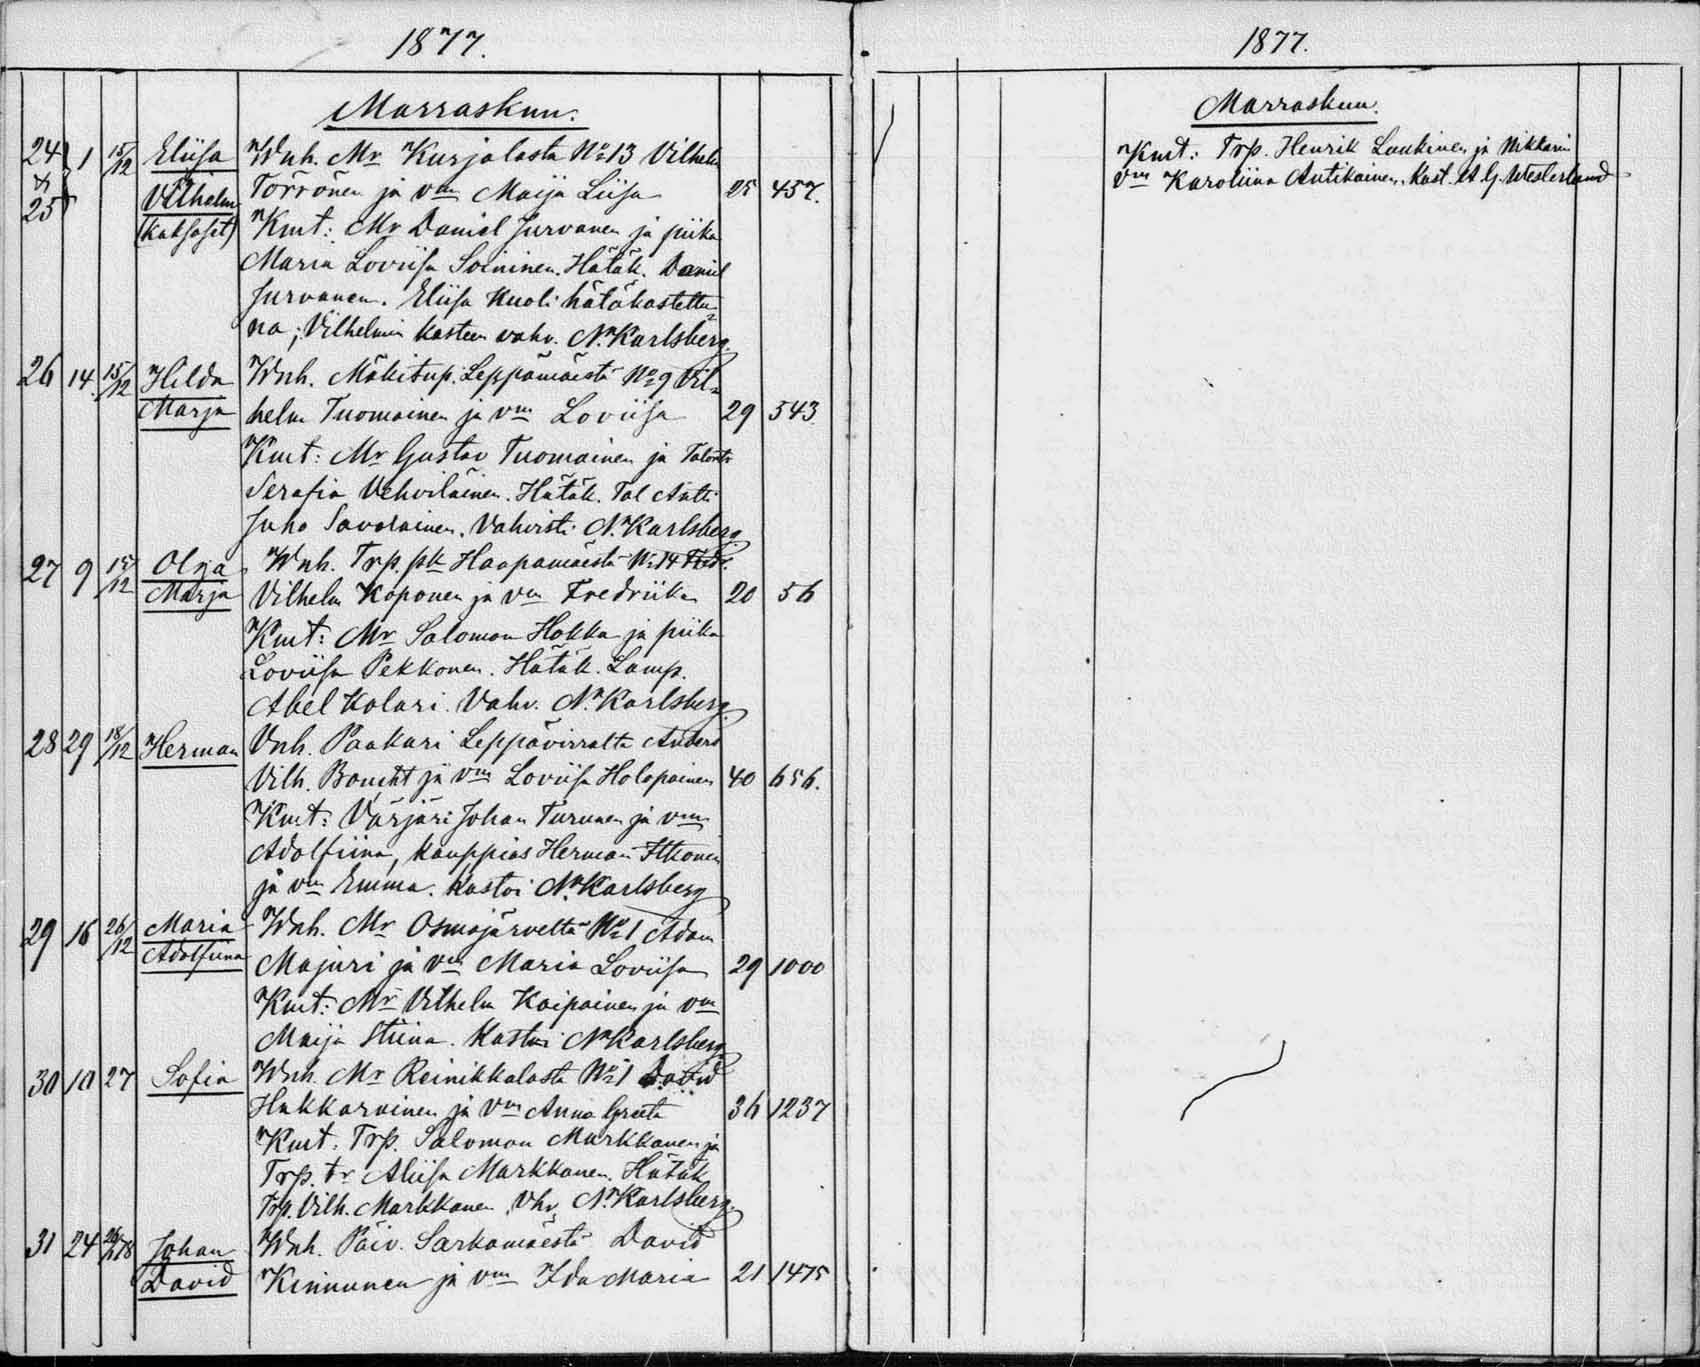 1877.
Marraskuu.
24 & 25 1 15/12 Eliisa Wnh. Mr Kurjalasta No 13 Vilhelm
Vilhelm Törrönen ja vm Maija Liisa 25 457.
(kaksoset) Kmt: Mr Daniel Jurvanen ja piika
Maria Loviisa Soininen. Hätäk. Daniel
Jurvanen. Eliisa kuoli hätäkastettu-
na; Vilhelmin kasteen vahv. N. Karlsberg.
26 14 15/12 Hilda Wnh. Mäkitup. Leppämäestä No 9 Vil-
Marja helm Tuomainen ja vm Loviisa 29 543.
Kmt: Mr Gustav Tuomainen ja Talontr
Serafia Vehviläinen. Hätäk. Tal Antti
Juho Savolainen. Vahvisti N. Karlsberg.
27 9 15/12 Olga Wnh. Trp. pk Haapamäestä No 14
Marja Vilhelm Koponen ja vm Fredriika 20 56
Kmt: Mr Salomon Hokka ja piika
Loviisa Pekkonen. Hätäk. Lamp.
Abel Kolari. Vahv. N. Karlsberg.
28 29 18/12 Herman Vnh. Paakari Leppävirralta Anders
Vilh. Boucht ja vm Loviisa Holopainen 40 656.
Kmt: Värjäri Johan Turunen ja vm
Adolfiina, kauppias Herman Itkonen
ja vm Emma. Kastoi N. Karlsberg
29 16 26/12 Maria Wnh. Mr Osmajärveltä No 1 Adam
Adolfiina Majuri ja vm Maria Loviisa 29 1000
Kmt: Mr Vilhelm Kaipainen ja vm
Maija Stiina. Kastoi N. Karlsberg.
30 10 27 Sofia Wnh. Mr Reinikkalasta No 1 David
Hukkarainen ja vm Anna Greeta 36 1237
Kmt. Trp. Salomon Markkanen ja
Trp. tr Aliisa Markkanen. Hätäk
Trp. Vilh. Markkanen. Vhv. N. Karlsberg.
31 24 Johan Wnh. Päiv. Sarkamäestä David
David Kinnunen ja vm Ida Maria 21 1475
1877.
Marraskuu.
Kmt: Trp. Henrik Laukinen ja Nikkarin
vm Karoliina Antikainen. Kast. A. G. Westerlund